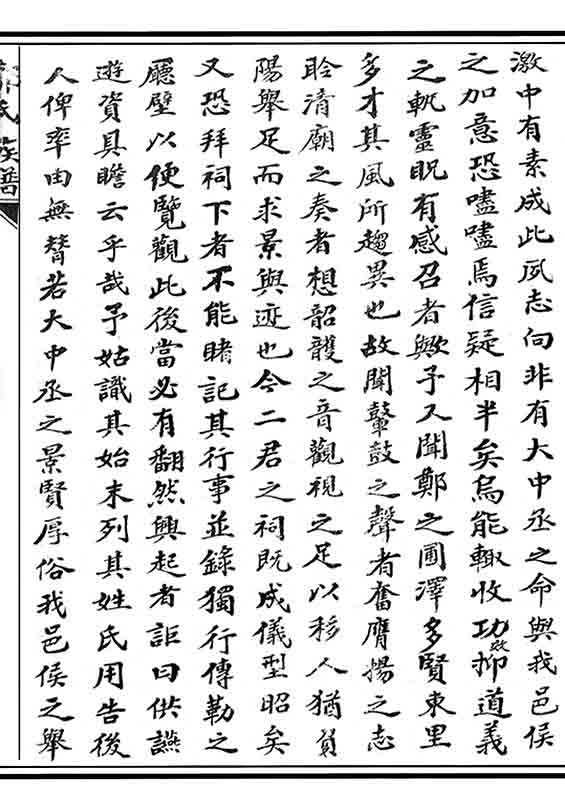 激中有素成此夙志向非有大中丞之命與我邑侯
之加意恐嚍嚍焉信疑相半矣烏能輙收功效抑道義
之軌靈貺有感召者歟予又聞鄭之圃澤多賢東里
多才其風所趨異也故聞鼙鼓之聲者奮鷹揚之志
聆清廟之奏者想韶頀之音觀視之足以移人猶負
陽舉足而求景與迹也今二君之祠既成儀型昭矣
又恐拜祠下者不能睹記其行事並錄獨行傳勒之
廳壁以便覽觀此後當必有翻然興起者詎曰供讌
遊資具瞻云乎哉予姑識其始末列其姓氏用告後
人俾率由無替若大中丞之景賢厚俗我邑侯之舉
氏族譜